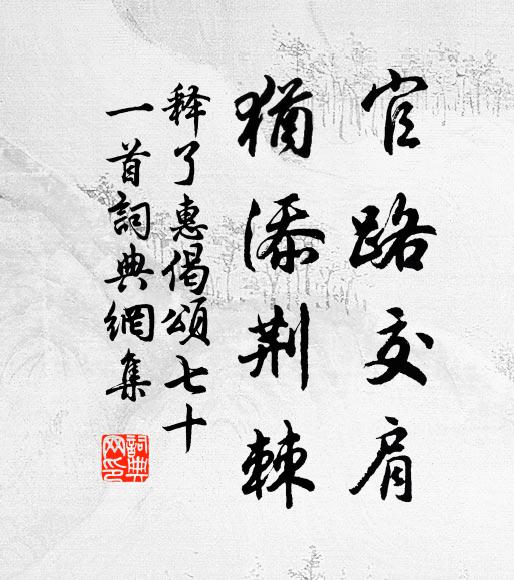 官路交肩
猶添荆棘
释了惠偈頌七十
一首詞典網集
詞典网印